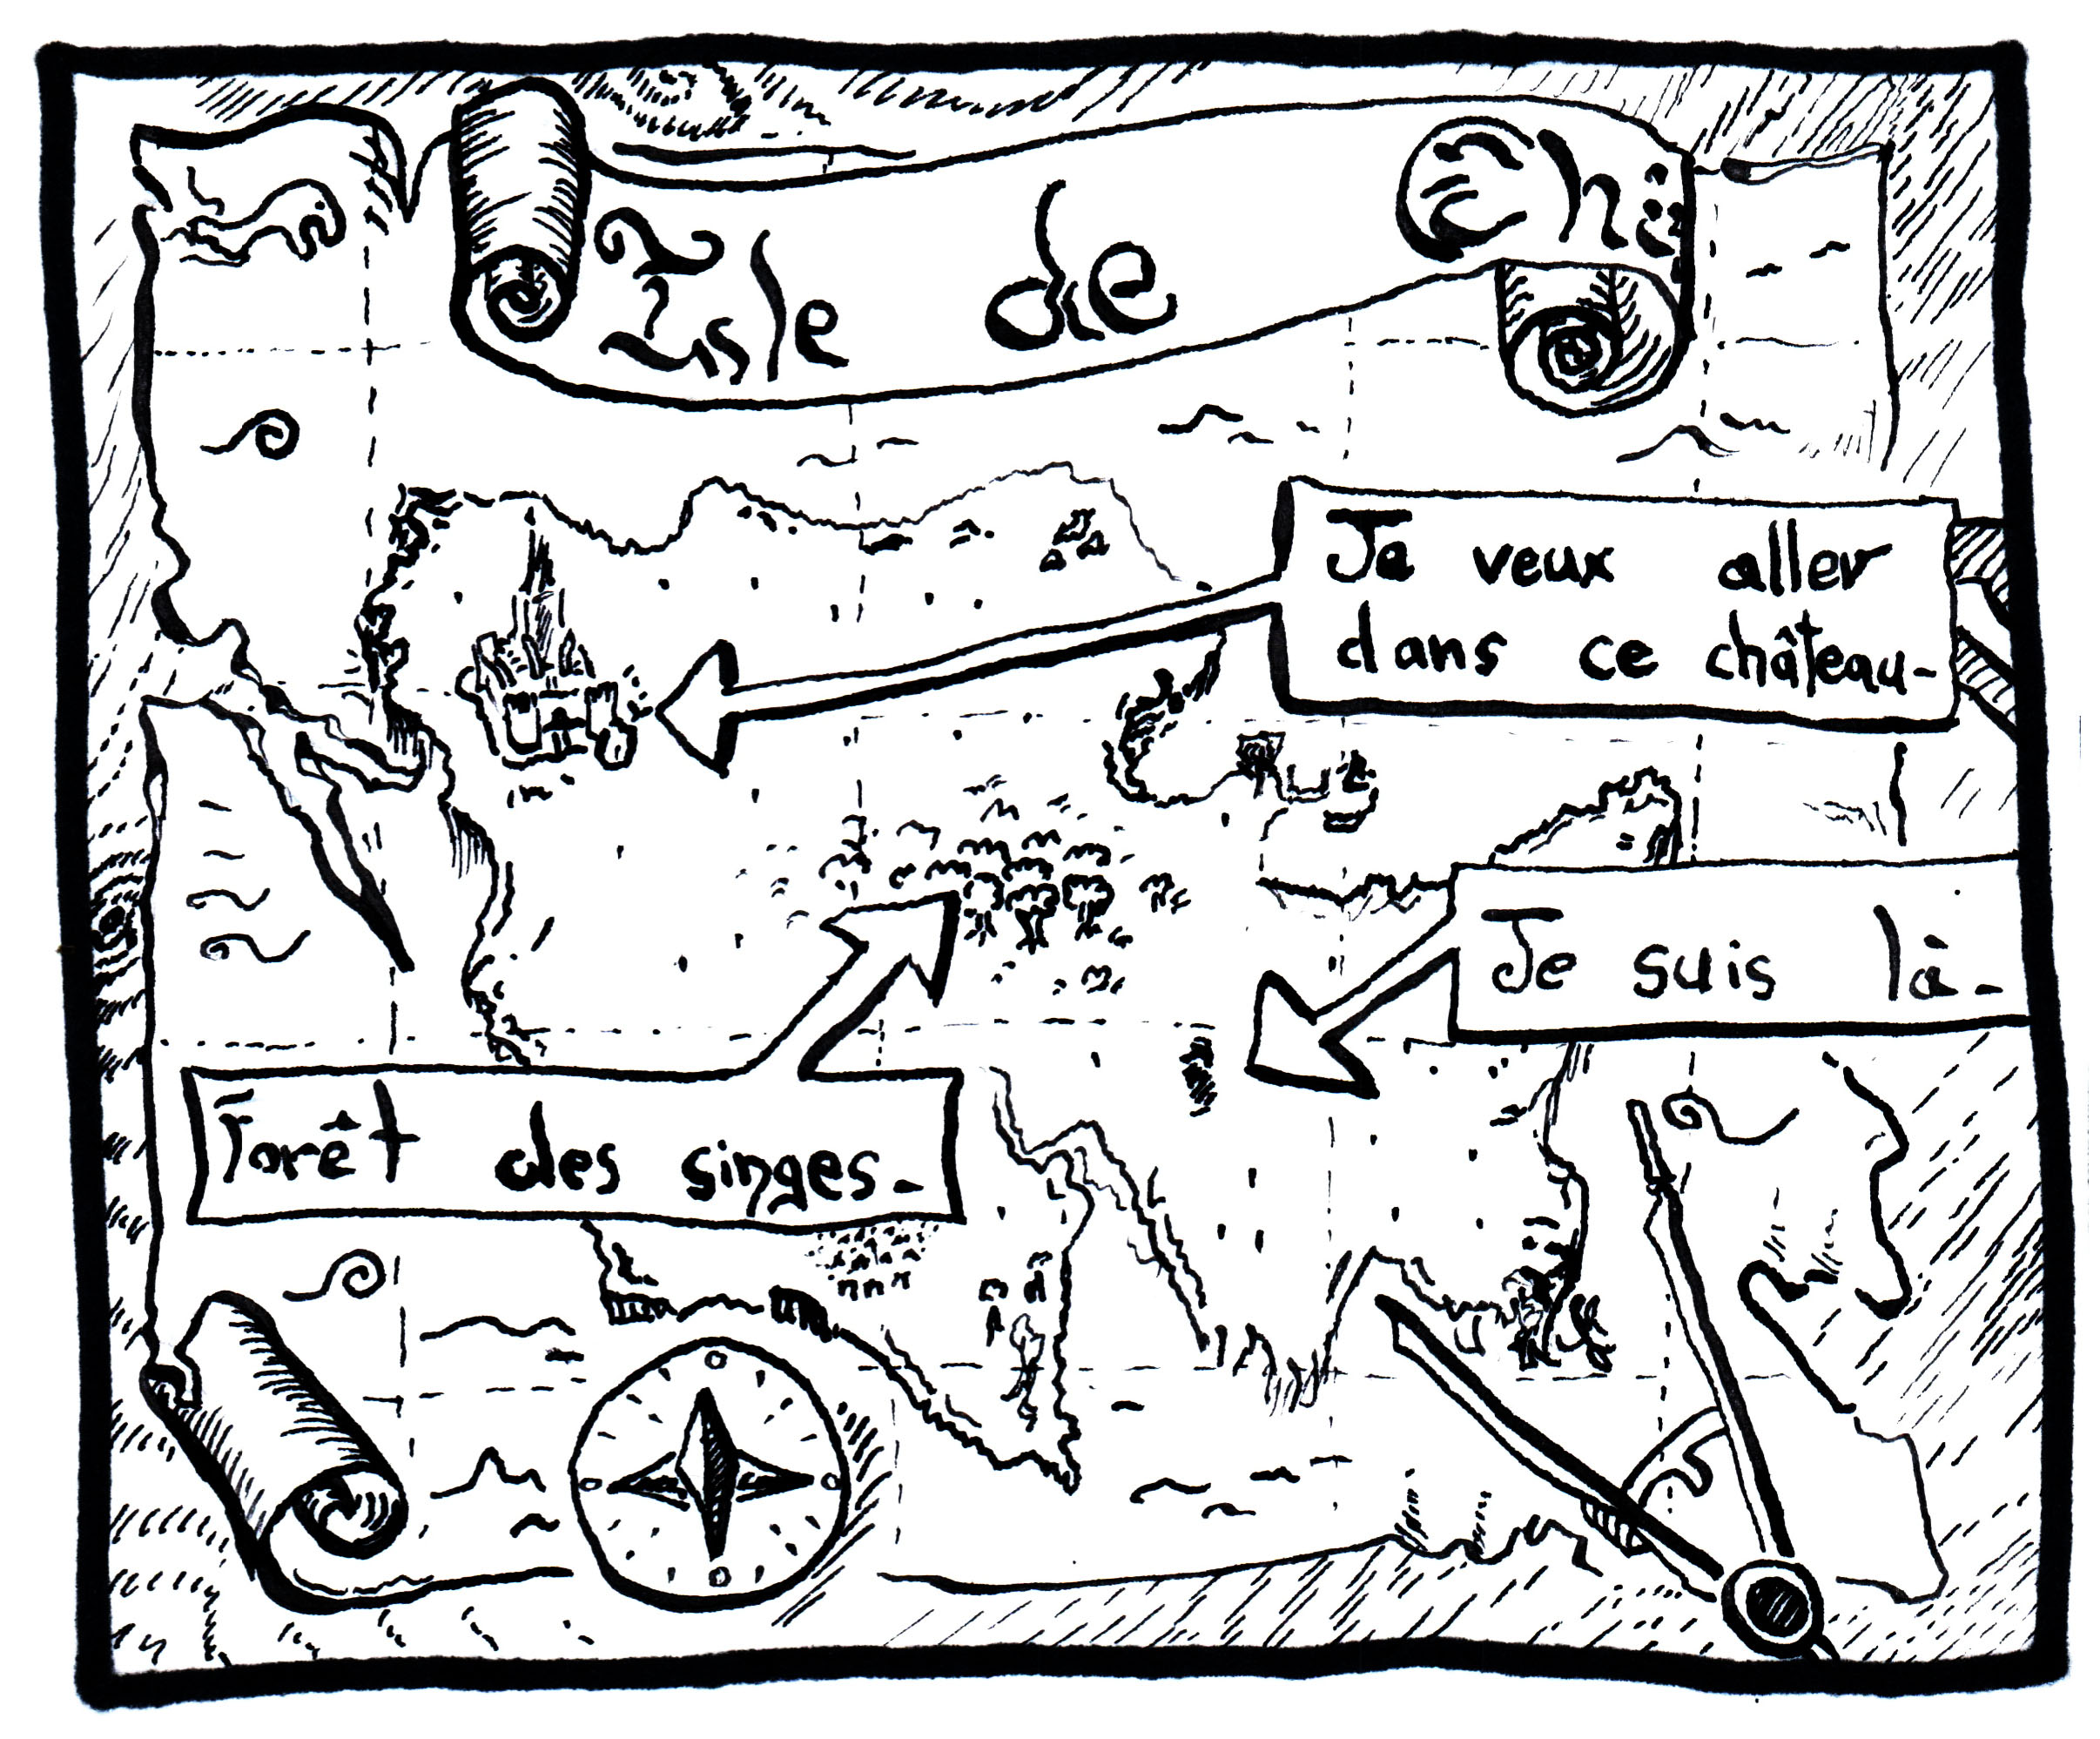 Isle de
Je veux aller
dans ce château.
Je suis là.
Forêt des singes.